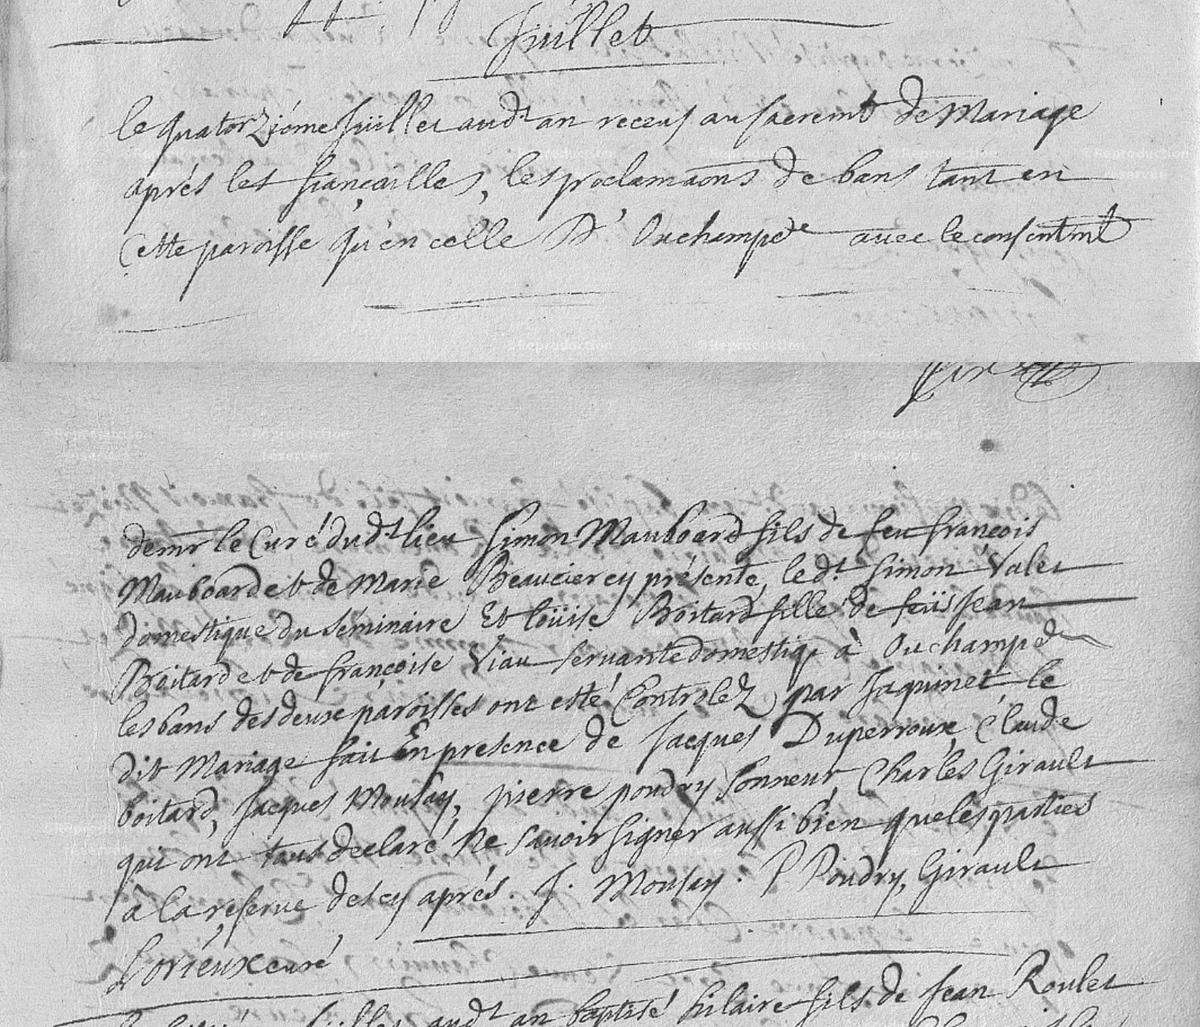 Juillet
le quatorziéme Juillet aud.t an receus au sacremt de Mariage
aprés les fiançailles, les proclamaons de bans tant en
Cette paroisse qu'en celle D' Ouchampde avec le consentmt
demr le Curé dud.t lieu Simon Mauboard fils de feu françois
Mauboard et de Marie Beaucier cy présente, led.t Simon Valet
domestique du séminaire Et loüise Boitard fille de feüs Jean
Boitard et de françoise Viau servante domestiq à Ouchampde
les bans des deux paroisses ont esté Controlez par Jaquinet le
dit Mariage fait En presence de Jacques Duperroux, Claude
boitard, Jacques Monsay, pierre poudry sonneur, Charles Girault
qui ont tous declaré Ne savoir signer aussi bien que les parties
à la reserve des cy aprés. J. Monsay. P Poudry, Girault
Lorieux curé
Juillet aud.t an baptisé hilaire fils de Jean Roulet